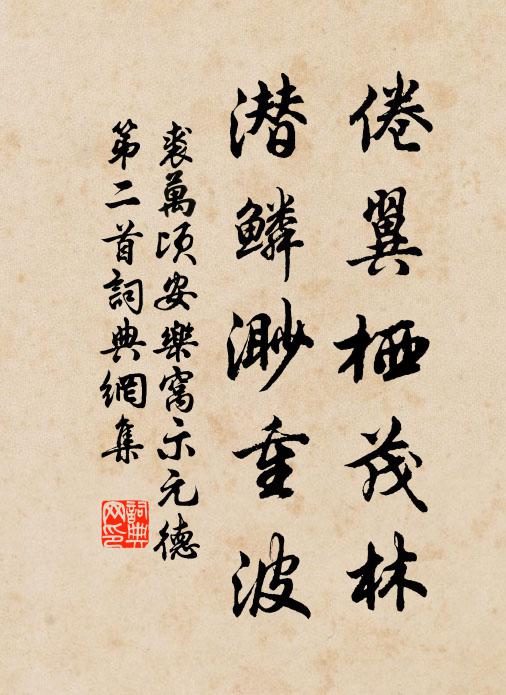 倦翼栖茂林
潜鳞渺重波
裘萬頃安樂窩示元德
第二首詞典網集
詞典网印